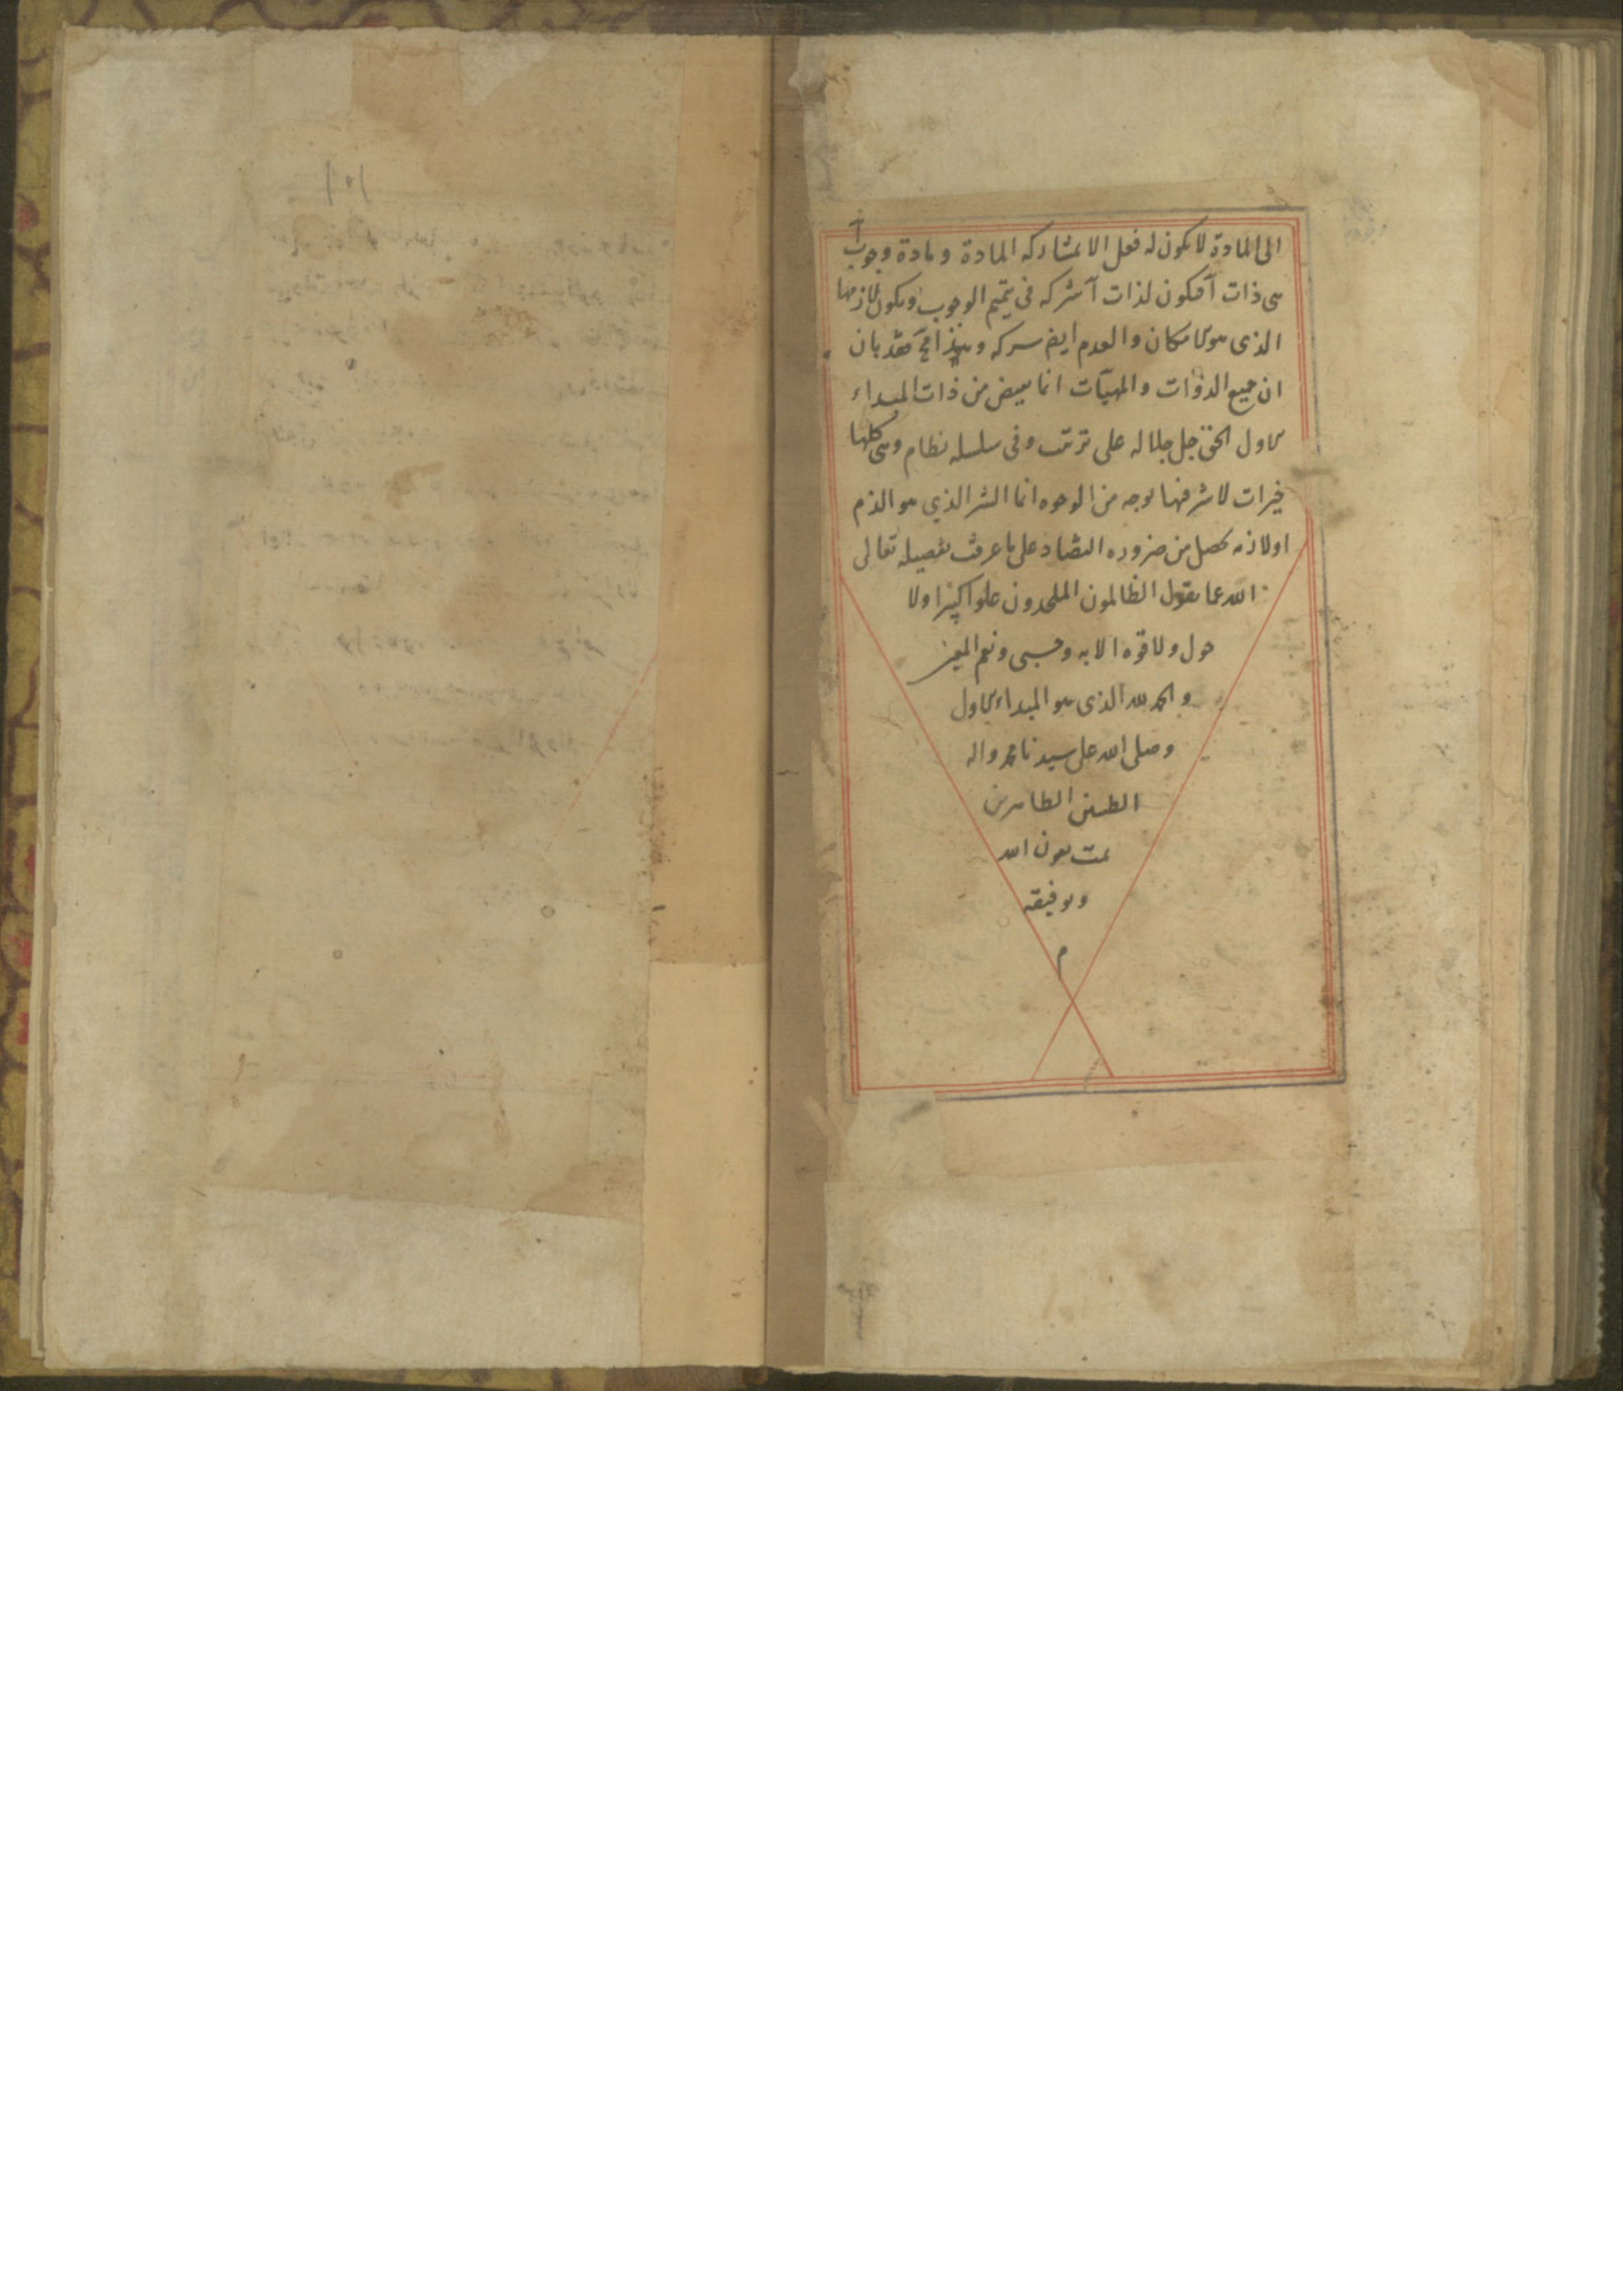 الى المادة لا يكون له فعل الا بمشاركه المادة و مادة وجوب آ
هى ذات آ فيكون لذات آ شركه فى تتميم الوجوب ويكون للازمها
الذى هو الامكان والعدم ايضا شركه وهذا مح فقد بان
ان جميع الذوات والمهيآت انما يفيض من ذات المبداء
الاول الحق جل جلاله على ترتيب وفى سلسله نظام وهى كلها
خيرات لا شر فيها بوجه من الوجوه انما الشر الذي هو الذم
او لازمه يحصل من ضروره التضاد على ما عرفت تفصيله تعالى
الله عما يقول الظالمون الملحدون علوا كبيرا ولا
حول ولا قوه الا به وحسبى ونعم المعين
والحمد لله الذى هو المبداء الاول
وصلى الله على سيدنا محمد واله
الطيبين الطاهرين
تمت بعون الله
وتوفيقه
م